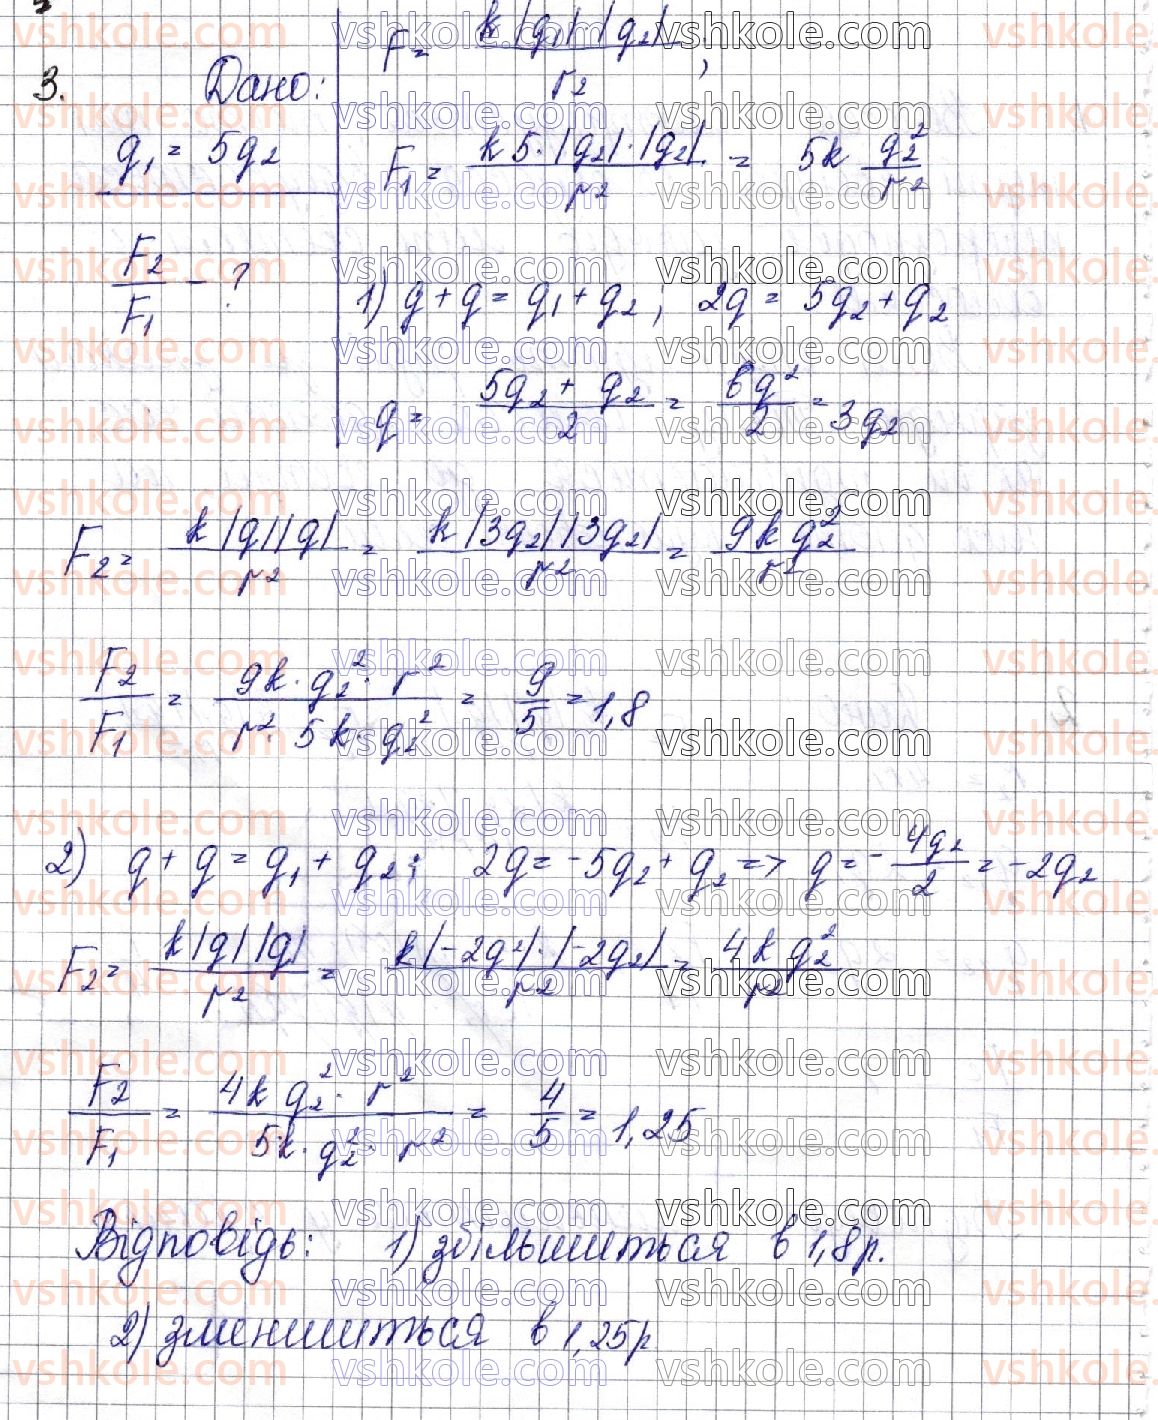 F = k|q₁| |q₂| / r² ;
3. Дано:
q₁ = 5q₂
F₁ = k5·|q₂|·|q₂| / r² = 5k q₂² / r²
F₂ / F₁ - ?
1) q + q = q₁ + q₂ ; 2q = 5q₂ + q₂
q = 5q₂ + q₂ / 2 = 6q² / 2 = 3q₂
F₂ = k|q||q| / r² = k|3q₂||3q₂| / r² = 9kq₂² / r²
F₂ / F₁ = 9k·q₂²·r² / r²·5k·q₂² = 9 / 5 = 1,8
2) q + q = q₁ + q₂ ; 2q = -5q₂ + q₂ => q = - 4q₂ / 2 = -2q₂
F₂ = k|q||q| / r² = k|-2q²|·|-2q₂| / r² = 4kq₂² / r²
F₂ / F₁ = 4kq₂²·r² / 5k·q₂²·r² = 4 / 5 = 1,25
Відповідь: 1) збільшиться в 1,8р.
2) зменшиться в 1,25р
vshkole.com